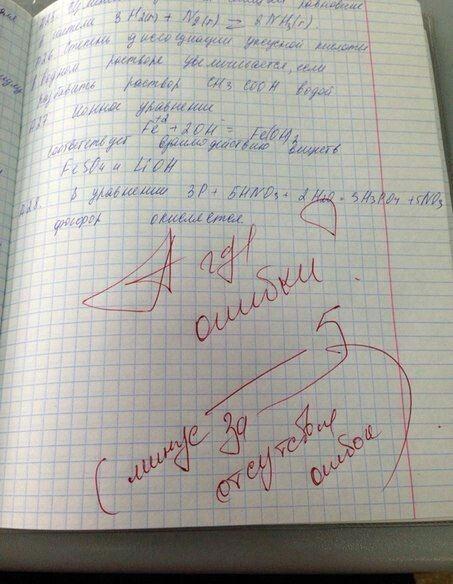 системе 3 H2(г) + N2(г) = 2 NH3(г)
А26. Степень диссоциации уксусной кислоты
в водном растворе увеличивается, если
разбавить раствор CH3 COOH водой
А27. Ионное уравнение
Fe+2 + 2OH- = Fe(OH)2
соответствует взаимодействию веществ
FeSO4 и LiOH
А28. В уравнении 3P + 5HNO3 + 2 H2O = 3H3PO4 + 5NO
фосфор окисляется
А где
ошибки
5
(минус за
отсутствие
ошибок